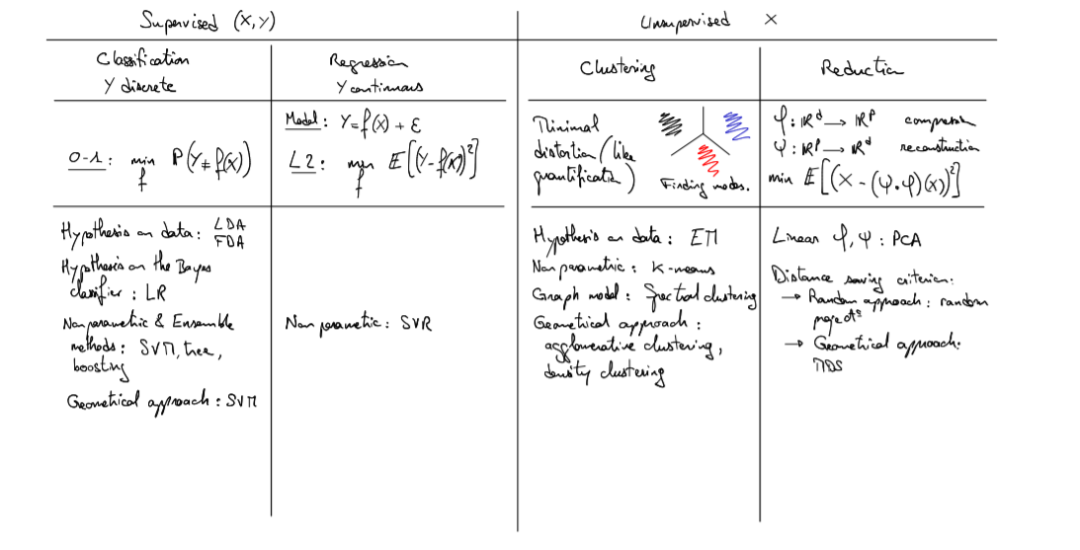 Supervised (X,Y)
Unsupervised X
Classification
Y discrete
Regression
Y continuous
Clustering
Reduction
0-1: min P(Y≠f(X))
f
Model: Y=f(X) + ε
L2: min E[(Y-f(X))²]
f
Minimal
distortion (like
quantification)
Finding modes.
φ: ℝᵈ → ℝᵖ compression
ψ: ℝᵖ → ℝᵈ reconstruction
min E[(X - (ψ∘φ)(X))²]
Hypothesis on data: LDA
FDA
Hypothesis on the Bayes
classifier: LR
Non parametric & Ensemble
methods: SVM, tree,
boosting
Geometrical approach: SVM
Non parametric: SVR
Hypothesis on data: EM
Non parametric: K-means
Graph model: Spectral clustering
Geometrical approach:
agglomerative clustering,
density clustering
Linear φ, ψ: PCA
Distance saving criterion:
→ Random approach: random
project°
→ Geometrical approach:
MDS